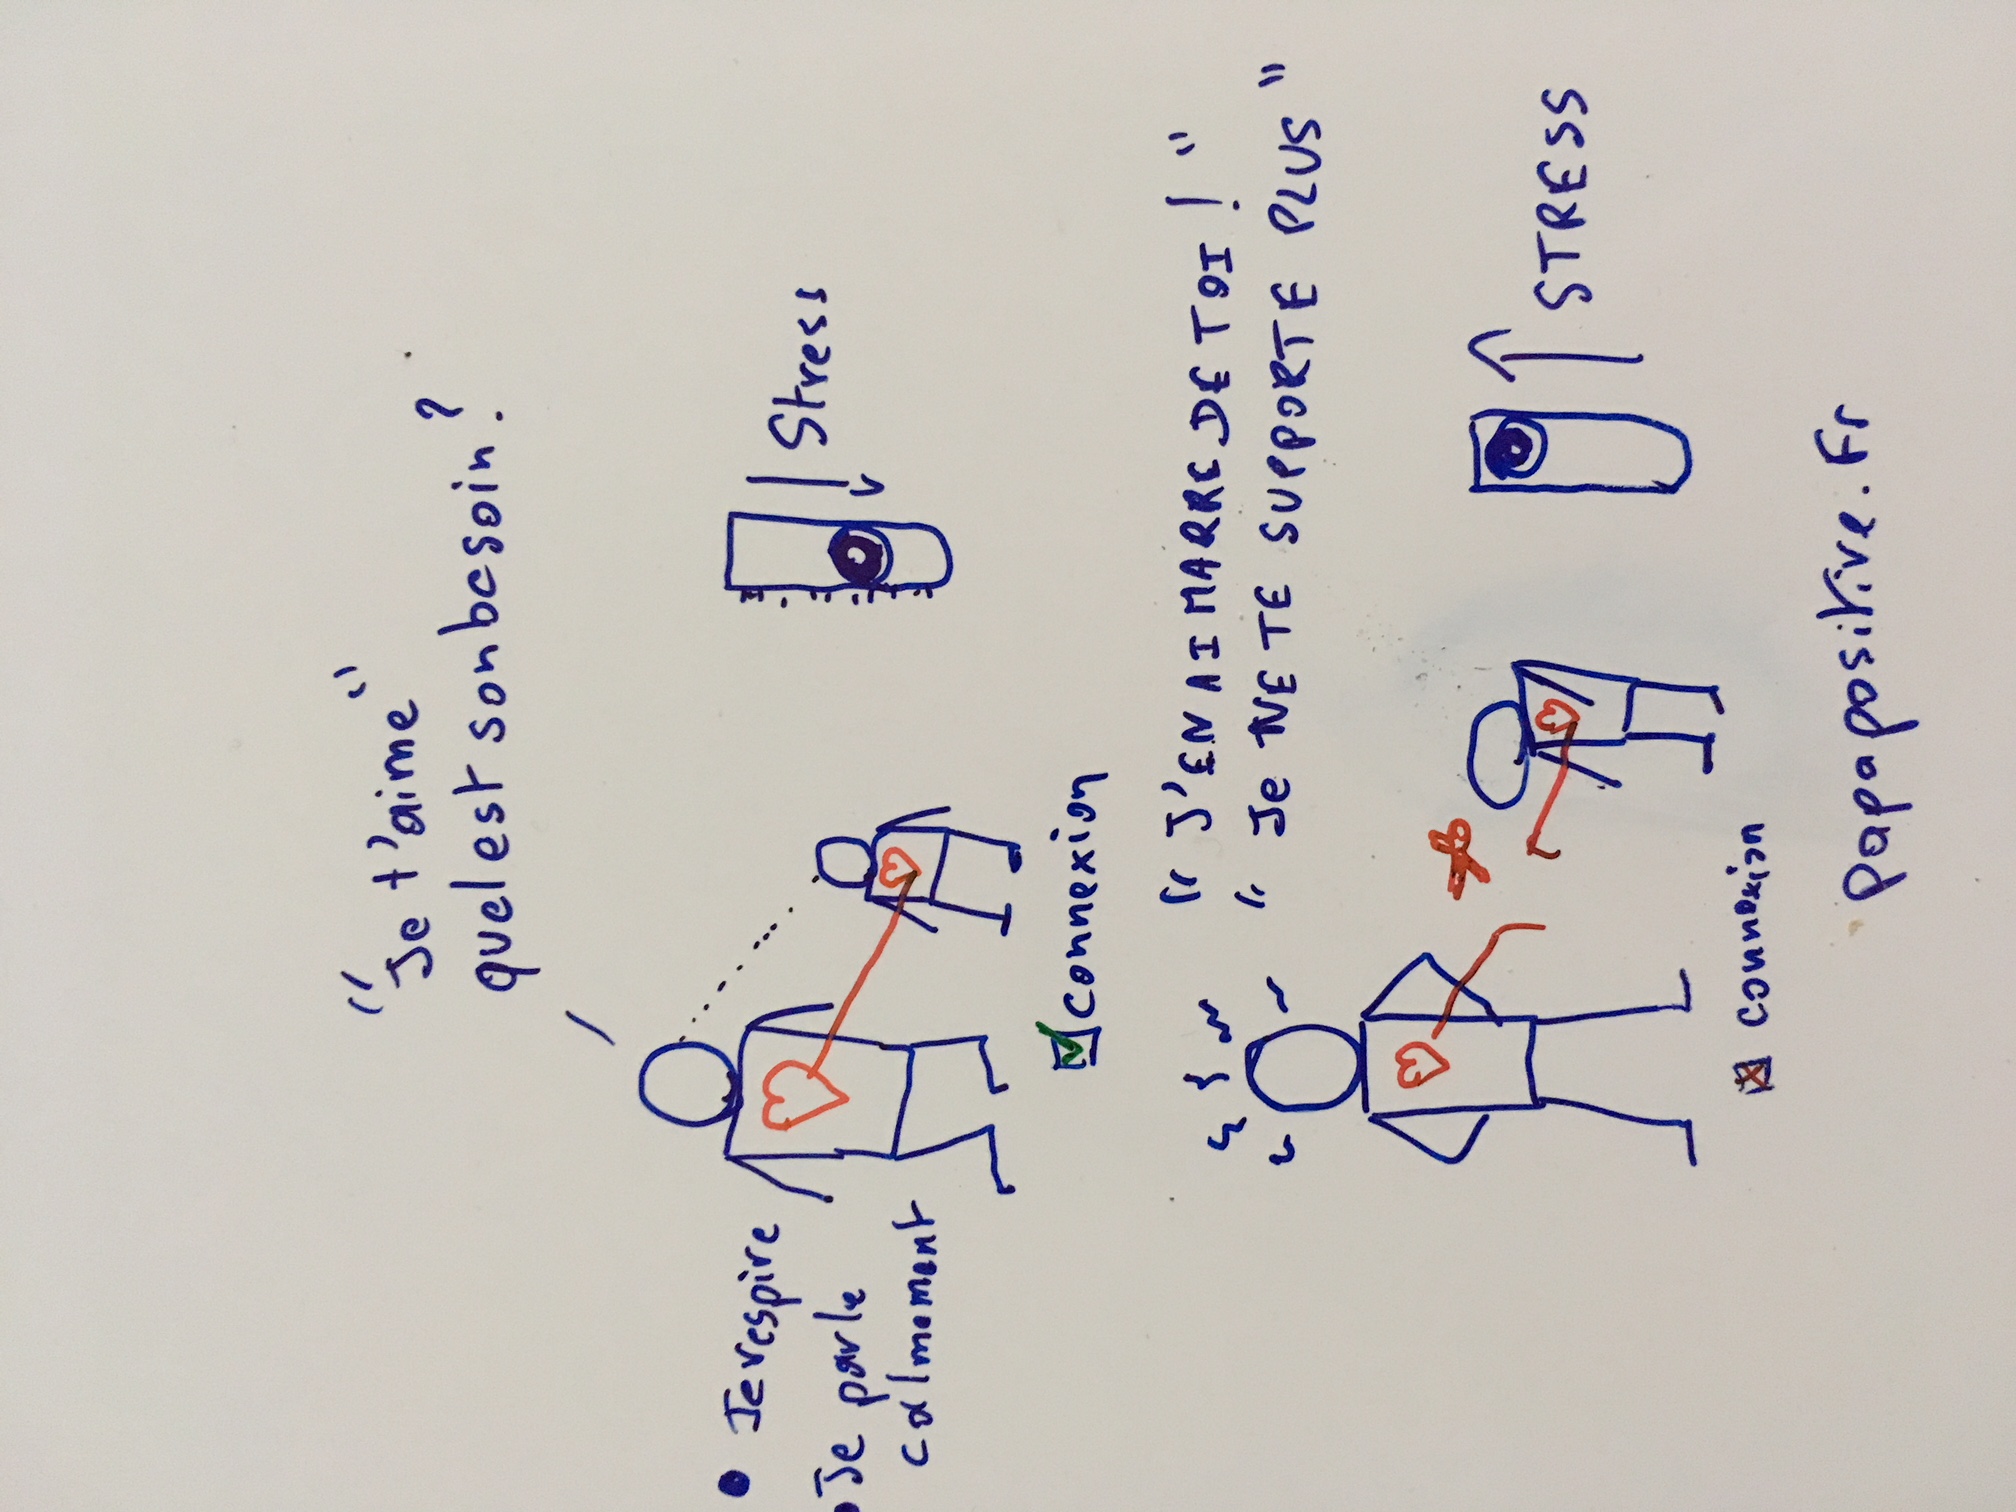 "Je t'aime"
quel est son besoin ?
• Je respire
• Je parle
calmement
Stress
connexion
"J'EN AI MARRE DE TOI !"
"Je NE TE SUPPORTE PLUS"
STRESS
connexion
papapositive.Fr